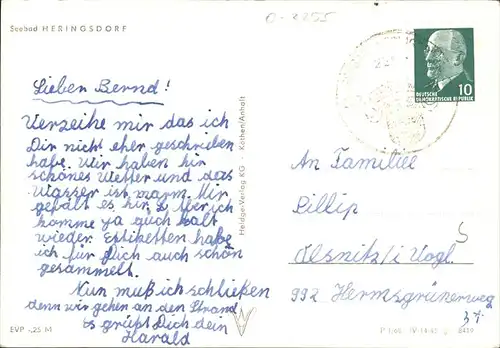 O-2255
Seebad HERINGSDORF
Lieben Bernd!
Verzeihe mir das ich
Dir nicht eher geschrieben
habe. Wir haben hir
schönes Wetter und das
Wasser ist warm. Mir
gefält es hir, aber ich
komme ya auch balt
wieder. Estiketten habe
ich für Dich auch schön
gesammelt.
Nun muß ich schließen
denn wir gehen an den Strand
Es grüßt Dich dein
Harald
EVP -,25 M
Heldge-Verlag KG · Köthen/Anhalt
10
DEUTSCHE
DEMOKRATISCHE REPUBLIK
An Familiee
Pillip
Oelsnitz/i Vogl.
992 Hermsgrünerweg
37